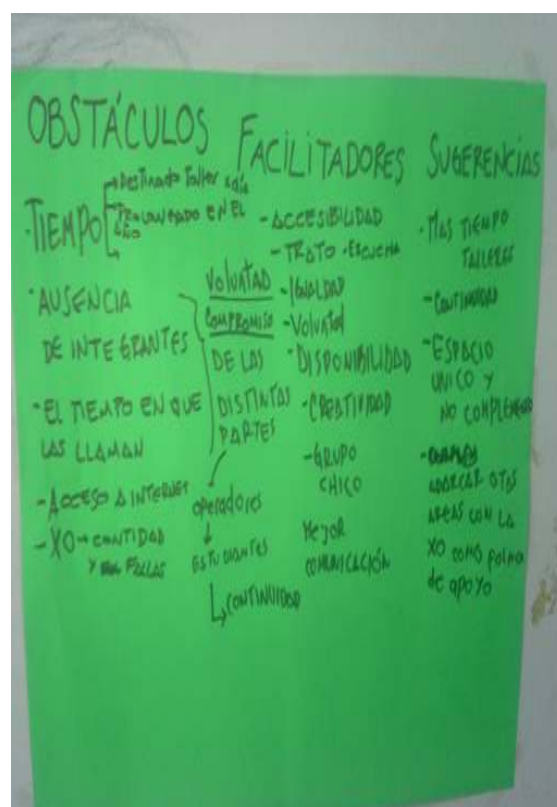 OBSTÁCULOS
-TIEMPO
Destinado Taller
PROLONGADO EN EL
AÑO
-AUSENCIA
DE INTEGRANTES
-EL TIEMPO EN QUE
LAS LLAMAN
-ACCESO A INTERNET
-XO→CANTIDAD
Y FALLAS
VOLUNTAD
COMPROMISO
DE LAS
DISTINTAS
PARTES
operadores
ESTUDIANTES
CONTINUIDAD
FACILITADORES
-ACCESIBILIDAD
-TRATO-ESCUCHA
-IGUALDAD
-Voluntad
-DISPONIBILIDAD
-CREATIVIDAD
-GRUPO
CHICO
MEJOR
COMUNICACIÓN
SUGERENCIAS
-MAS TIEMPO
TALLERES
-CONTINUIDAD
-ESPACIO
UNICO Y
NO
ABARCAR OTAS
AREAS CON LA
XO COMO FORMA
de apoyo